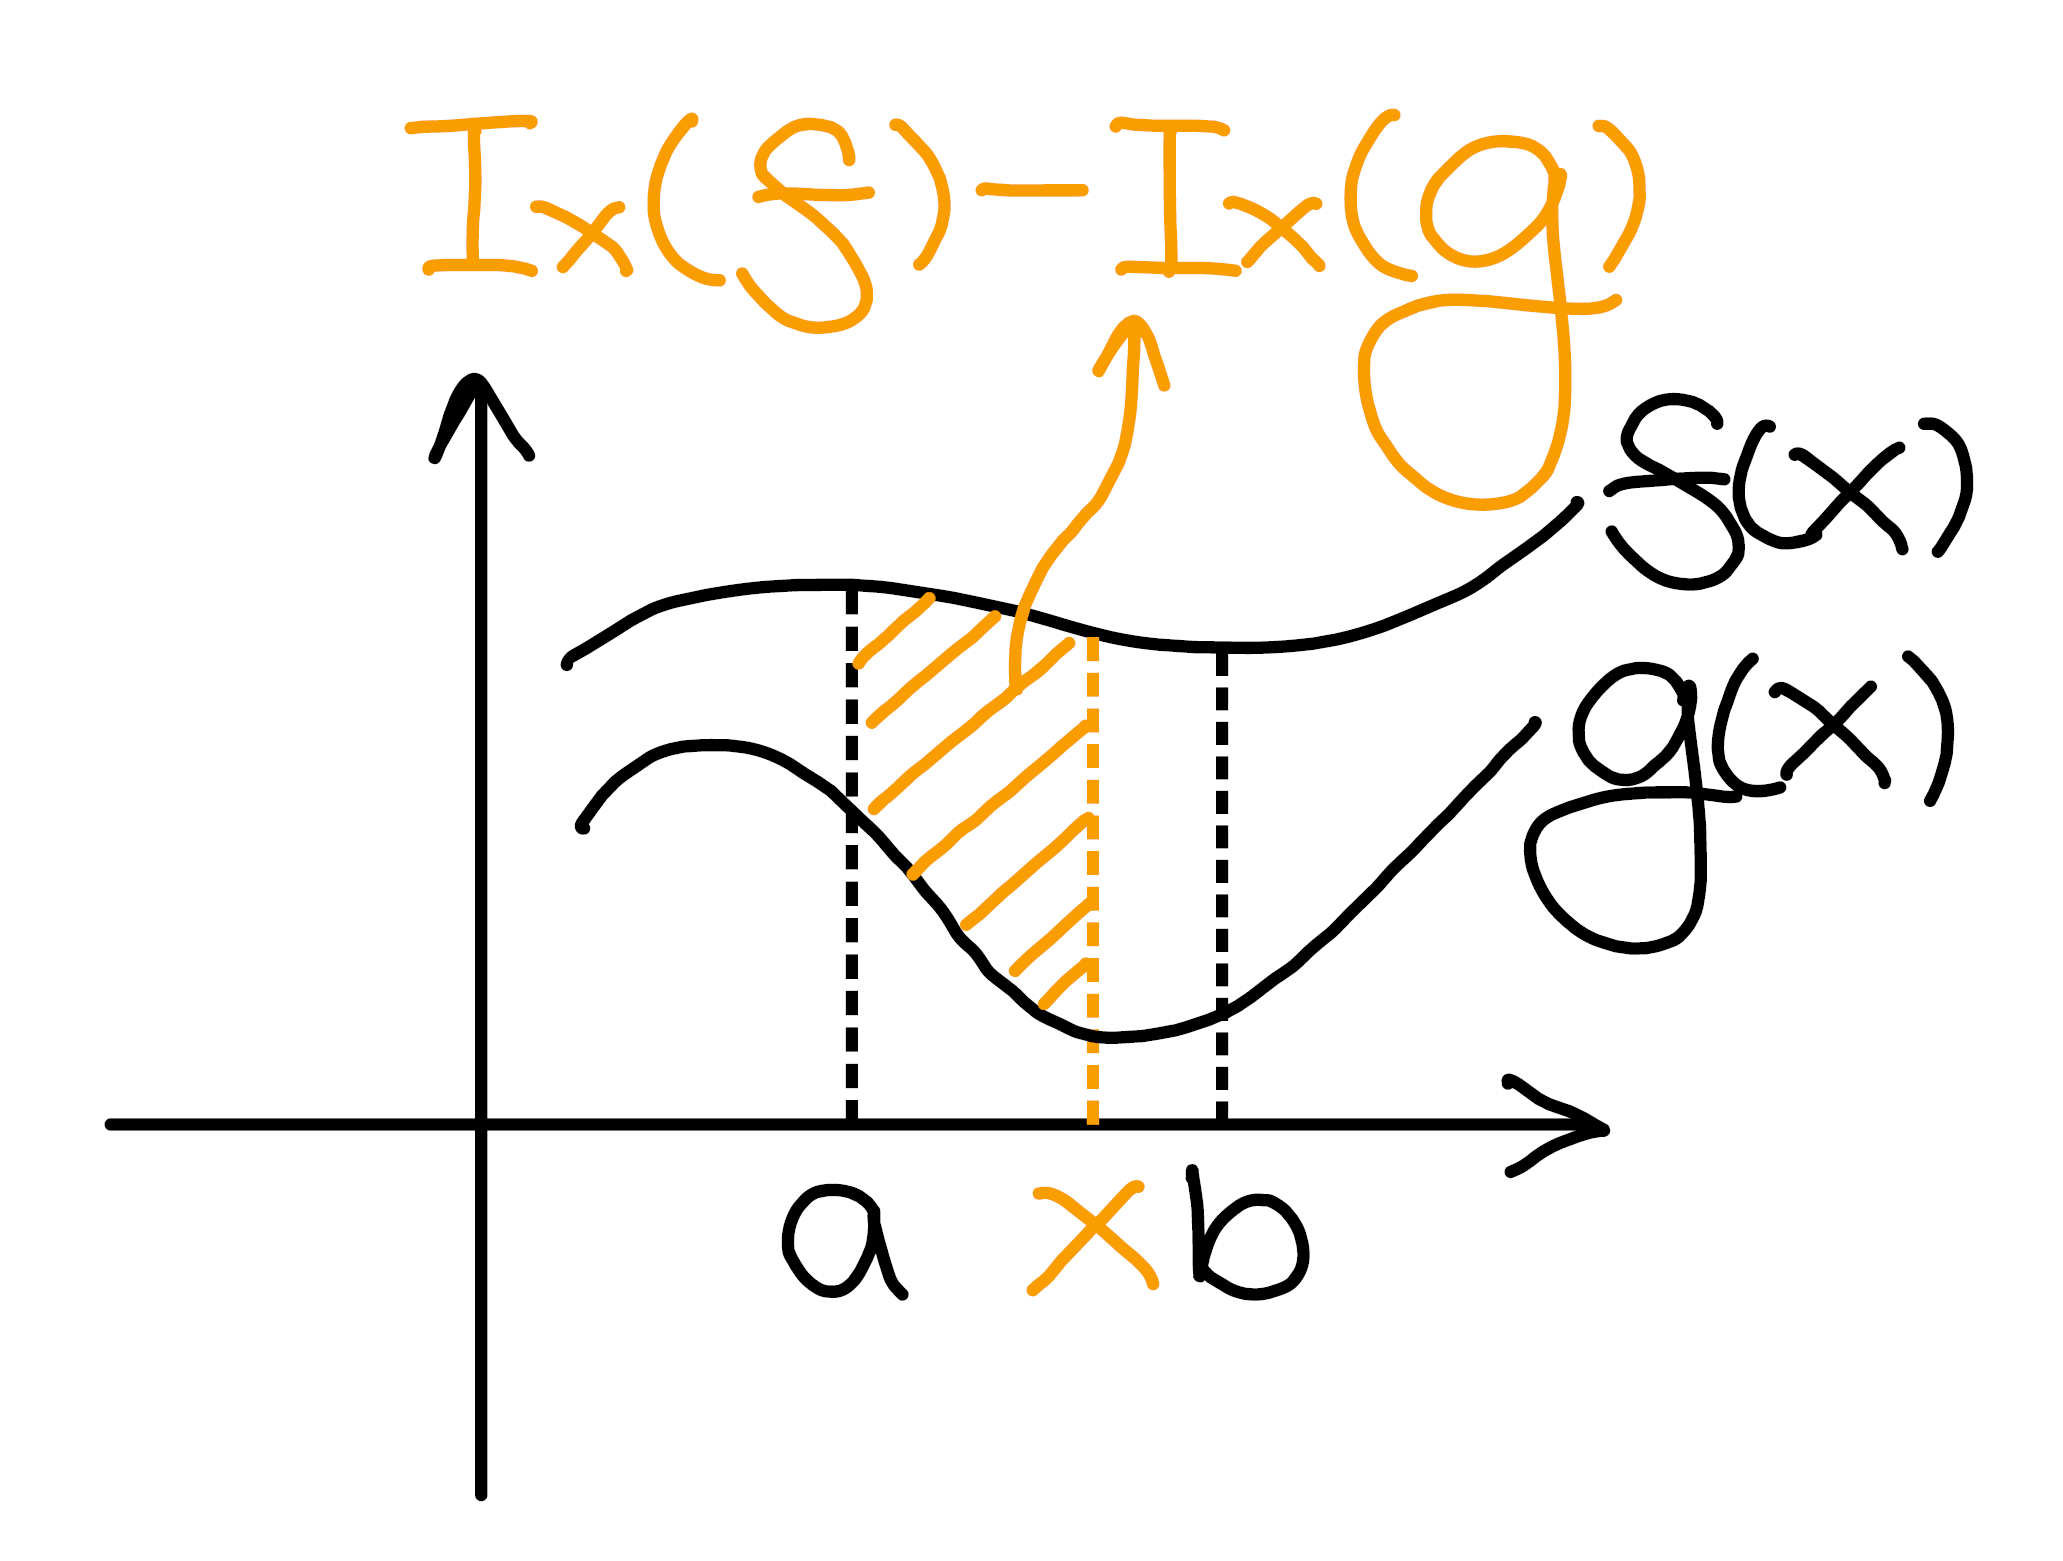 Ix(f)-Ix(g)
f(x)
g(x)
a x b